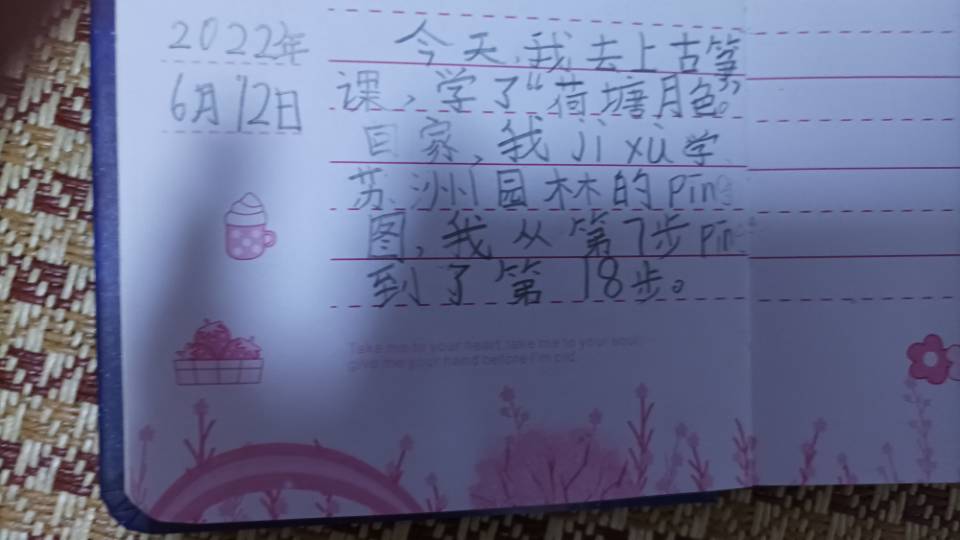 2022年
6月12日
今天,我去上古筝
课,学了“荷塘月色”。
回家,我jì xù学
苏洲园林的pīn
图,我从第7步pīn
到了第18步。
Take me to your heart take me to your soul
give me your hand before I'm old